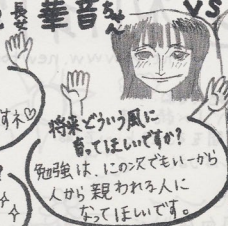 長女 華音ちゃん VS
すネ♡
将来どういう風に
育ってほしいですか?
勉強は、にの次でもいーから
人から親われる人に
なってほしいです。